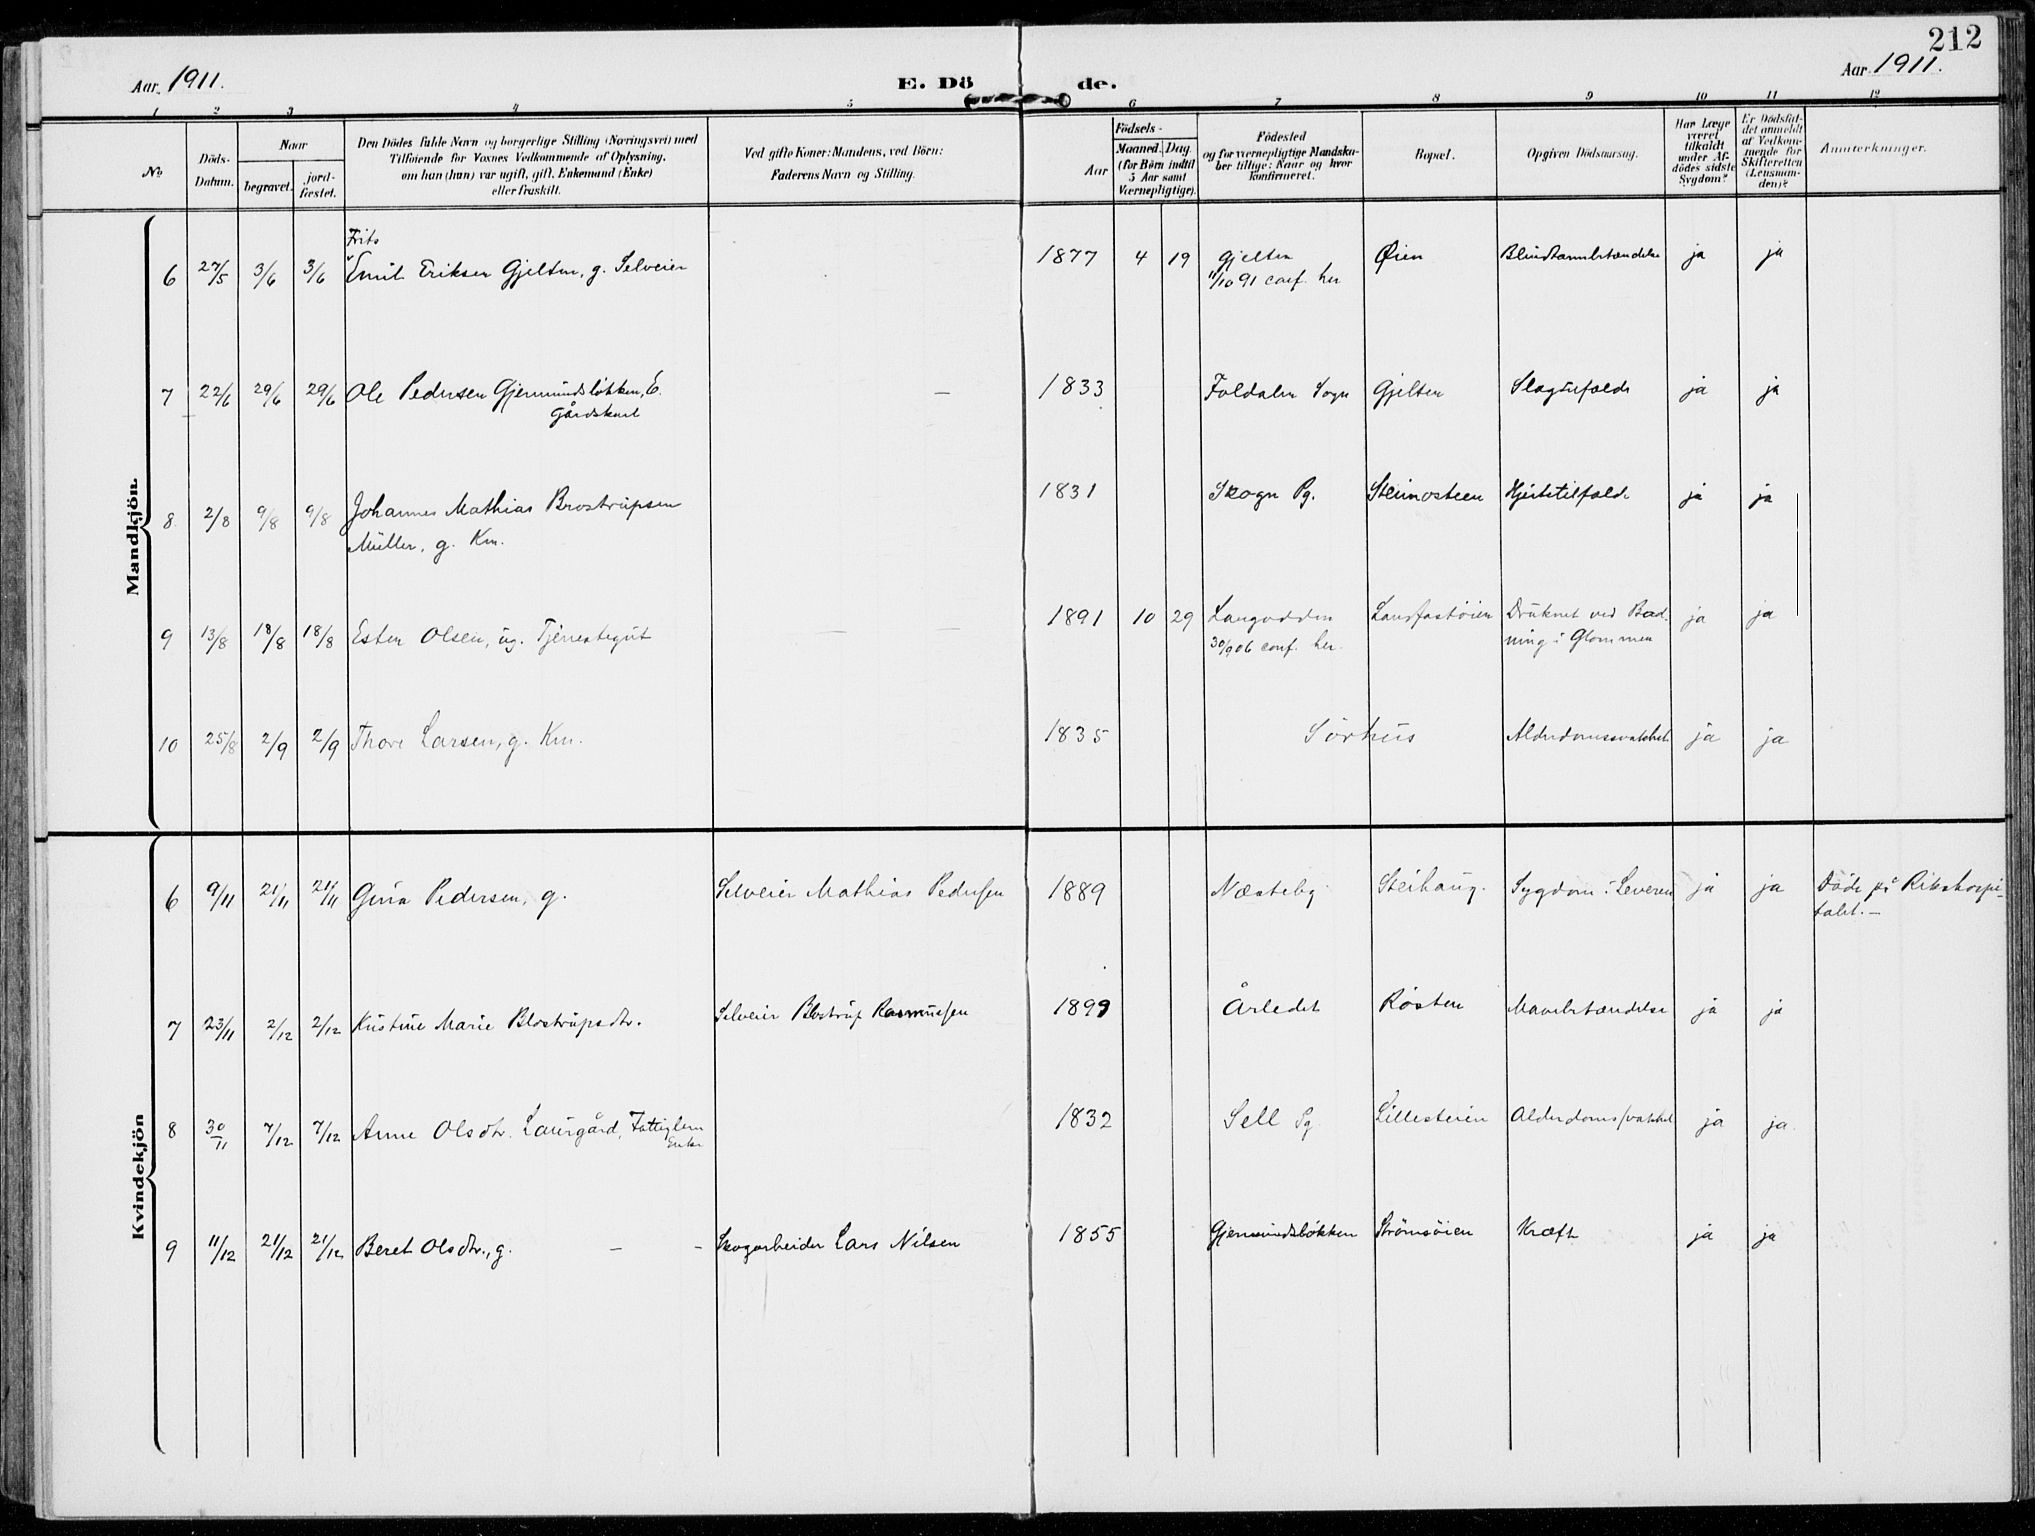 212
Aar 1911.
E. Dö de.
Aar 1911.
1 2 3 4 5 6 7 8 9 10 11 12
No
Döds-
Datum.
Naar
begravet.
jord-
fæstet.
Den Dödes fulde Navn og borgerlige Stilling (Næringsvei) med
Tilföiende for Voxnes Vedkommende af Oplysning,
om han (hun) var ugift, gift, Enkemand (Enke)
eller fraskilt.
Ved gifte Koner: Mandens, ved Börn:
Faderens Navn og Stilling.
Födsels-
Aar
Maaned. Dag.
(for Börn indtil
5 Aar samt
Værnepligtige).
Födested
og for værnepligtige Mandska-
ber tillige: Naar og hvor
konfirmeret.
Bopæl.
Opgiven Dödsaarsag.
Har Læge
været
tilkaldt
under Af-
dödes sidste
Sygdom?
Er Dödsfal-
det anmeldt
af Vedkom-
mende for
Skifteretten
(Lensman-
den)?
Anmærkninger.
Mandkjön.
Frits
6 27/5 3/6 3/6 Emil Eriksen Gjelten, g. Selveier 1877 4 19 Gjelten Øien Blindtarmbetændelse ja ja
11/10 91 conf. her
7 22/6 29/6 29/6 Ole Pedersen Gjermundsløkken, E. — 1833 Foldalen Sogn Gjelten Slagtilfælde ja ja
Gårdskarl
8 2/8 9/8 9/8 Johannes Mathias Brostrupsen 1831 Skogn Pg. Steimosteen Hjertetilfælde ja ja
Müller, g. Km.
9 13/8 18/8 18/8 Esten Olsen, ug. Tjenestegut — — 1891 10 29 Langodden Druknet ved Bad- ja ja
30/9 06 conf. her. ning i Glommen
10 25/8 2/9 2/9 Thore Larsen, g. Km. 1835 Sörhus Alderdomssvakhet ja ja
Kvindekjön
6 9/11 21/11 21/11 Gina Pedersen, g. Selveier Mathias Pedersen 1889 Næsteby Steihaug. Sygdom i Leveren ja ja Döde på Rikshospi-
talet. —
7 23/11 2/12 2/12 Kristine Marie Blostrupsdtr. Selveier Blostrup Rasmussen 1899 Årledet Røsten Mavebetændelse ja ja
8 30/11 7/12 7/12 Anne Olsdtr. Laurgård, Fattiglem 1832 Sell Sg. Lillesteien Alderdomssvakhet ja ja.
Enke
9 11/12 21/12 21/12 Beret Olsdtr., g. — - Skogarbeider Lars Nilsen 1855 Gjermundsløkken Strömsöien Kræft ja ja